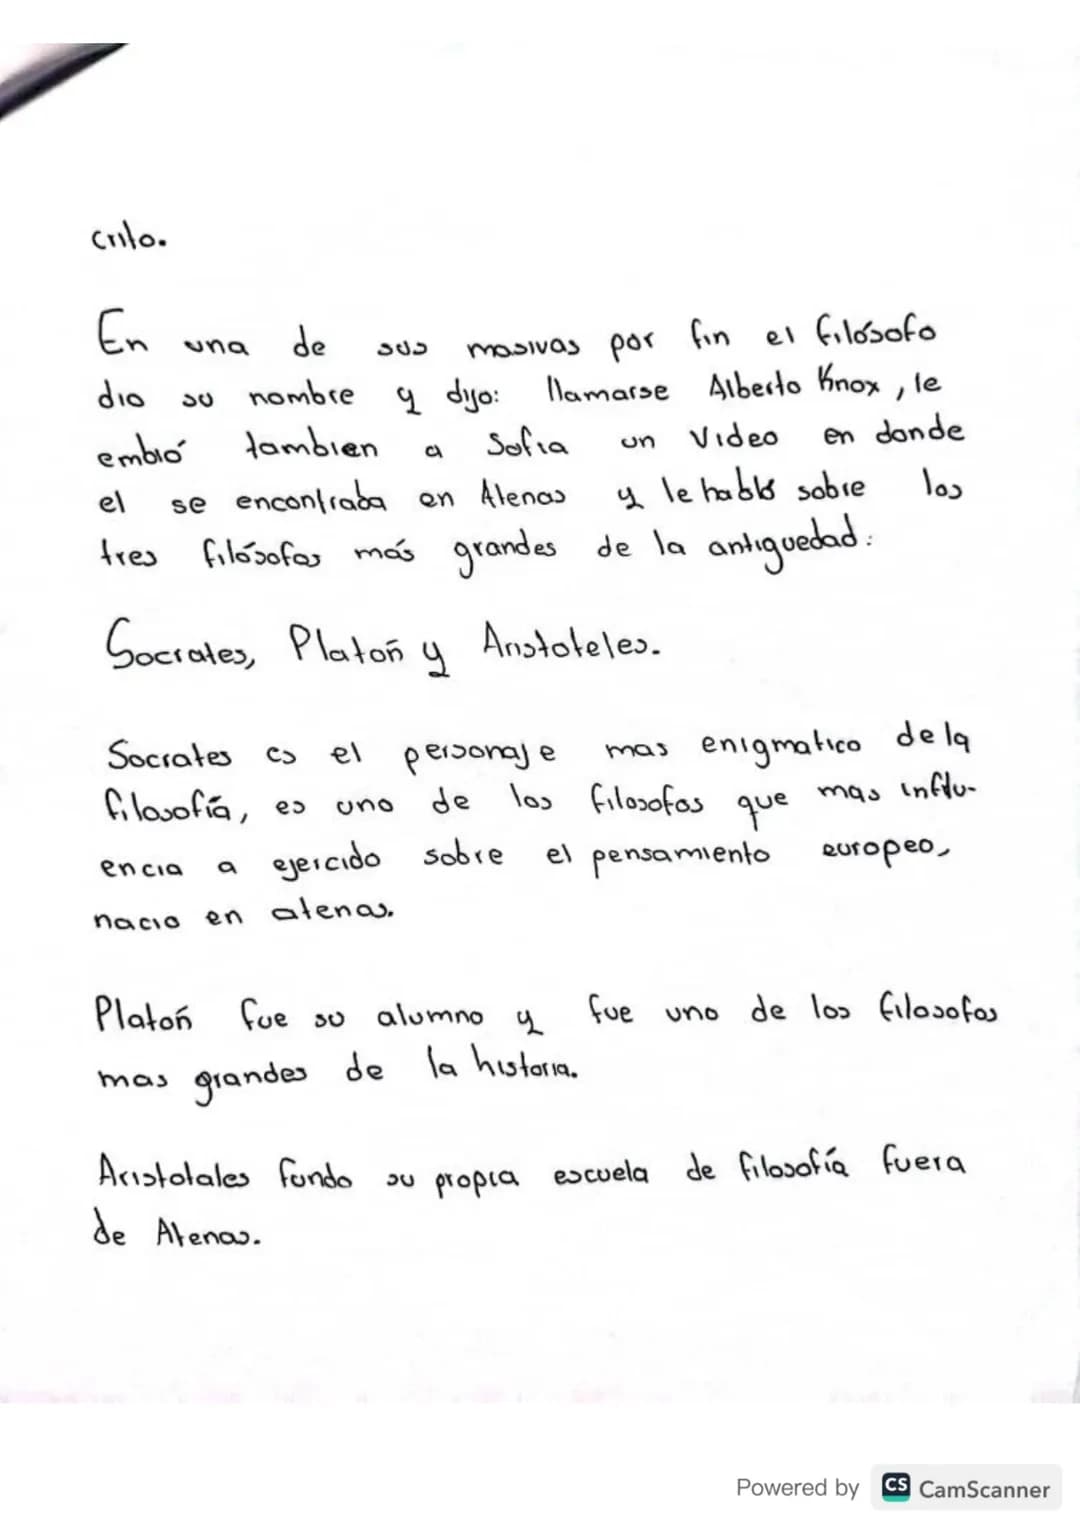 crito.
En una de sus masivas por fin el filósofo
dio su nombre y dijo: llamarse Alberto Knox, le
embió tambien a Sofia un Video en donde
el se encontraba en Atenas y le habló sobre los
tres filósofos más grandes de la antiguedad:
Socrates, Platón y Aristoteles.
Socrates es el personaje mas enigmatico de la
filosofía, es uno de los filosofos que mas influ-
encia a ejercido sobre el pensamiento europeo,
nacio en atenas.
Platón fue su alumno y fue uno de los filosofos
mas grandes de la historia.
Aristotales fundo su propia escuela de filosofía fuera
de Atenas.
Powered by CS CamScanner